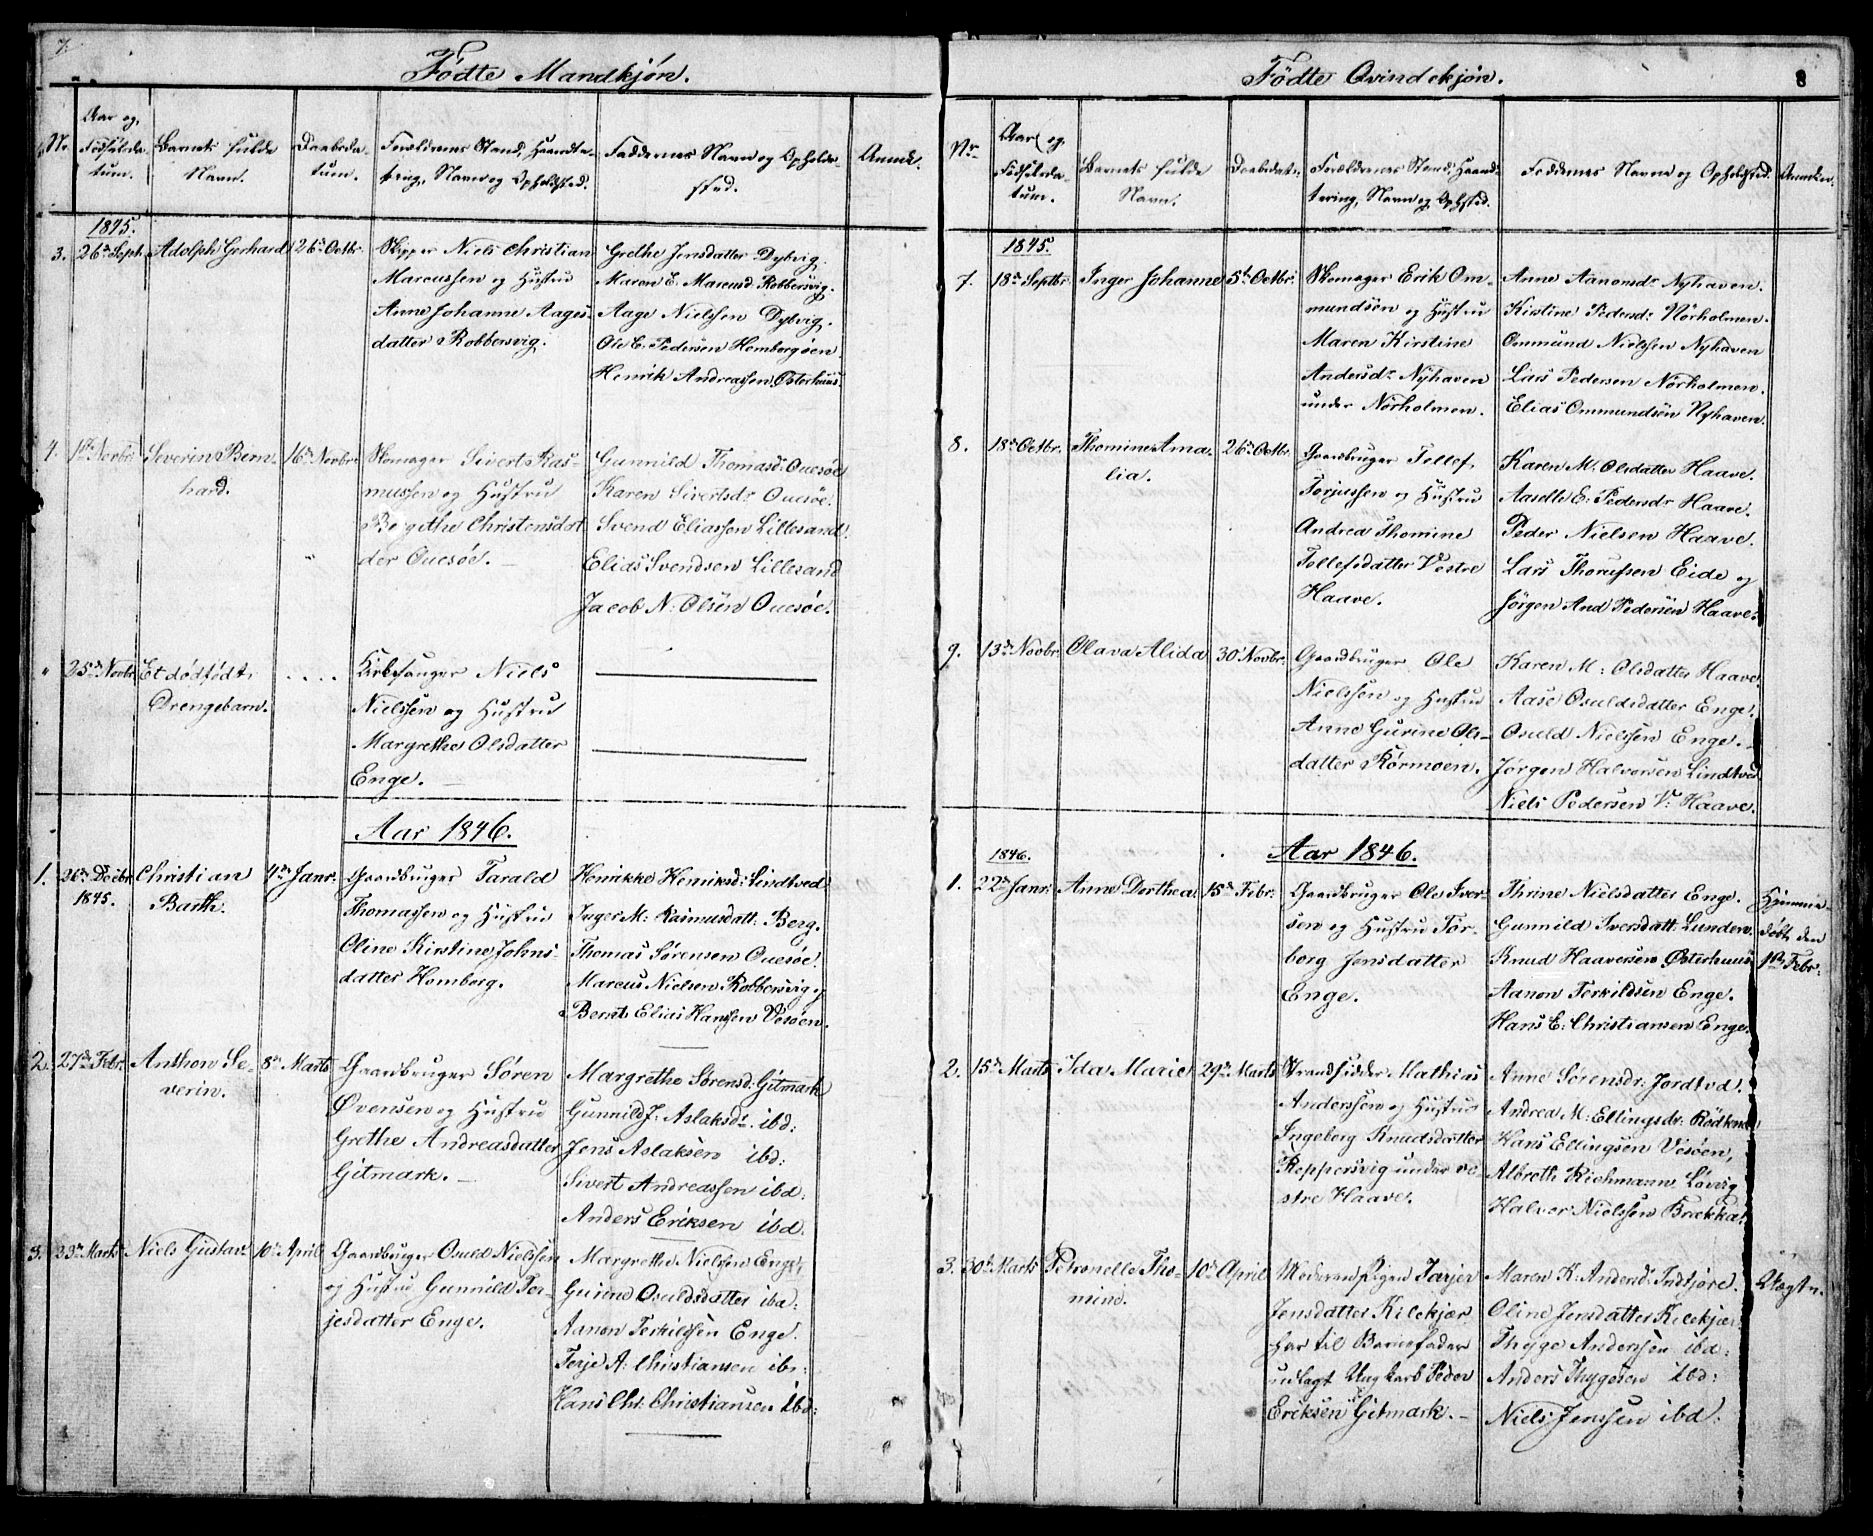 7.
Fødte Mandkjøn.
Nr.
Aar og
Fødselsda-
tum.
Barnets fulde
Navn.
Daabsda-
tum.
Forældrenes Stand, Haandte-
tring, Navn og Opholdsted.
Faddernes Navn og Opholds-
sted.
Anmk.
1845.
3. 26de Septb. Adolph Gerhard 26de Octbr.
Skipper Niels Christian
Marcussen og Hustru
Anne Johanne Aages-
datter Robbersvig.
Grethe Jensdatter Dybvig.
Maren E. Marcusd. Robbersvig.
Aage Nielssen Dybvig.
Ole E. Pedersen Homborgøen
Henrik Andreassen Østerhuus.
4. 1ste Novbr. Severin Bern-
hard.
16de Novbr.
Skomager Sivert Ras-
mussen og Hustru
Birgithe Christensdat
der Ouesøe.
Gunnild Thomasdr Ouesøe
Karen Sivertsdr Ouesøe.
Svend Eliassen Lillesand.
Elias Svendsen Lillesand
Jacob N. Olsen Ouesøe.
" 25de Novbr. Et dødfødt
Drengebarn.
Kirkesanger Niels
Nielssen og Hustru
Margrethe Olsdatter
Enge.
Aar 1846.
1. 26de Decbr.
1845.
Christian
Barth.
4de Janr.
Gaardbruger Tarald
Thomassen og Hustru
Oline Kirstine Johns-
datter Homborg.
Henrikke Henriksd: Lindtved
Inger M: Rasmusdatt: Berg.
Thomas Sørensen Ouesøe.
Marcus Nielsen Robbersvig og
Bernt Elias Hanssen Vesøen.
2. 27de Febr. Anthon Se-
verin.
8de Marts
Gaardbruger Søren
Øvensen og Hustru
Grethe Andreasdatter
Gitmark.
Margrethe Sørensd: Gitmark
Gunnild J: Aslaksdr. ibd:
Jens Aslaksen ibd:
Sivert Andreassen ibd:
Anders Eriksen ibd.
3. 23de Marts Niels Gustav 10de April
Gaardbruger Osuld Nielssen
og Hustru Gunnild Ter-
jesdatter Enge.
Margrethe Nielssen Enge,
Gurine Osuldsdatter ibd:
Aanon Terkildssen Enge.
Terje A: Christiansen ibd:
Hans Chr: Christiansen ibd:
8
Fødte Qvindekjøn.
Nr.
Aar og
Fødselsda-
tum.
Barnets fulde
Navn.
Daabsdat:
Forældrenes Stand, Haand-
tering, Navn og Ophsted.
Faddernes Navne og Opholdsted.
Anmerkn.
1845.
7. 18de Septbr. Inger Johanne 5te Octbr.
Skomager Erik Om-
mundsen og Hustru
Maren Kirstine
Andersdr Nyhaven
under Nørholmen.
Anne Aanonsdr Nyhaven.
Kirstine Pedersdr Nørholmen.
Ommund Nielssen Nyhaven
Lars Pedersen Nørholmen.
Elias Ommundsen Nyhaven.
8. 18de Octbr. Thomine Ama-
lia.
26de Octbr.
Gaardbruger Tellef
Terjussen og Hustru
Andrea Thomine
Tellefsdatter Vestre
Haave.
Karen M. Olsdatter Haave.
Aaselle E. Pedersdr Haave.
Peder Nielsen Haave.
Lars Thorufsen Eide og
Jørgen And Pedersen Haave.
9. 13de Novbr. Olava Alida 30 Novbr.
Gaardbruger Ole
Nielssen og Hustru
Anne Gurine Ols-
datter Kørmoen.
Karen M: Olsdatter Haave.
Aase Osuldsdatter Enge.
Osuld Nielssen Enge.
Jørgen Halvorsen Lindtved
Niels Pedersen V: Haave.
1846.
Aar 1846.
1. 22de Janr: Anne Dorthea 15de Febr:
Gaardbruger Ole Iver-
sen og Hustru Tor-
borg Jensdatter
Enge.
Thrine Nielsdatter Enge.
Gunnild Iversdatt. Lunden.
Knud Haaversen Østerhuus
Aanon Terkildsen Enge.
Hans E: Christiansen Enge.
Hjemme-
døbt den
1ste Febr:
2. 15de Marts Ida Marie 29de Marts
Strandsidder Mathias
Anderssen og Hustru
Ingeborg Knudsdatter
Reppersvig under ve-
stre Haave.
Anne Sørensdr: Jordtvd.
Andrea M: Ellingsdr: Rødknd
Hans Ellingsen Vesøen,
Albreth Richmann Løvig
Halvor Nielssen Brækka.
3. 30te Marts Petronelle Tho-
mine.
10de April
Moderen Pigen Tarjer
Jensdatter Kilekjær
har til Barnefader
udlagt Ungkarl Peder
Eriksen Gitmark.
Maren K: Andersd: Fodtjøre.
Oline Jensdatter Kilekjær
Thyge Anderssen ibd:
Anders Thygesen ibd:
Niels Jenssen ibd:
Uægte.